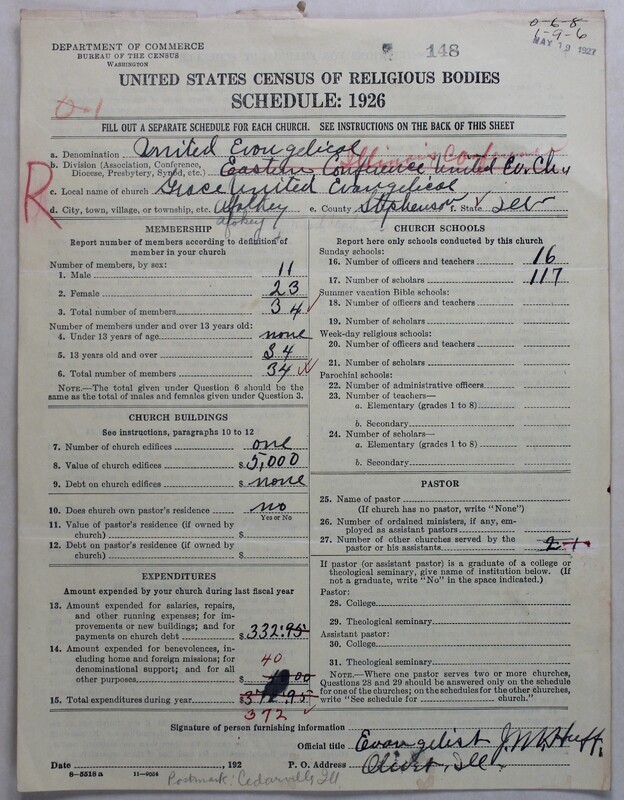 0-6-8
6-9-6
DEPARTMENT OF COMMERCE
BUREAU OF THE CENSUS
WASHINGTON
148
MAY 19 1927
UNITED STATES CENSUS OF RELIGIOUS BODIES
SCHEDULE: 1926
0-1
FILL OUT A SEPARATE SCHEDULE FOR EACH CHURCH. SEE INSTRUCTIONS ON THE BACK OF THIS SHEET
R
a. Denomination United Evangelical
Illinois Conference
b. Division (Association, Conference, Diocese, Presbytery, Synod, etc.) Eastern Conference United Ev. Ch
c. Local name of church Grace United Evangelical
d. City, town, village, or township, etc. Afolkey e. County Stephenson f. State Ill
MEMBERSHIP
Report number of members according to definition of member in your church
Number of members, by sex:
1. Male 11
2. Female 23
3. Total number of members 34
Number of members under and over 13 years old:
4. Under 13 years of age none
5. 13 years old and over 34
6. Total number of members 34
NOTE.—The total given under Question 6 should be the same as the total of males and females given under Question 3.
CHURCH BUILDINGS
See instructions, paragraphs 10 to 12
7. Number of church edifices one
8. Value of church edifices $ 5,000
9. Debt on church edifices $ none
10. Does church own pastor's residence no
Yes or No
11. Value of pastor's residence (if owned by church) $
12. Debt on pastor's residence (if owned by church) $
EXPENDITURES
Amount expended by your church during last fiscal year
13. Amount expended for salaries, repairs, and other running expenses; for improvements or new buildings; and for payments on church debt $ 332.95
14. Amount expended for benevolences, including home and foreign missions; for denominational support; and for all other purposes 40
15. Total expenditures during year $ 372.95
372
CHURCH SCHOOLS
Report here only schools conducted by this church
Sunday schools:
16. Number of officers and teachers 16
17. Number of scholars 117
Summer vacation Bible schools:
18. Number of officers and teachers
19. Number of scholars
Week-day religious schools:
20. Number of officers and teachers
21. Number of scholars
Parochial schools:
22. Number of administrative officers
23. Number of teachers—
a. Elementary (grades 1 to 8)
b. Secondary
24. Number of scholars—
a. Elementary (grades 1 to 8)
b. Secondary
PASTOR
25. Name of pastor
(If church has no pastor, write "None")
26. Number of ordained ministers, if any, employed as assistant pastors
27. Number of other churches served by the pastor or his assistants 2 1
If pastor (or assistant pastor) is a graduate of a college or theological seminary, give name of institution below. (If not a graduate, write "No" in the space indicated.)
Pastor:
28. College
29. Theological seminary
Assistant pastor:
30. College
31. Theological seminary
NOTE.—Where one pastor serves two or more churches, Questions 28 and 29 should be answered only on the schedule for one of the churches; on the schedules for the other churches, write "See schedule for church."
Signature of person furnishing information
Official title Evangelist Huff
Date , 192 P. O. Address Olivet, Ill.
8-5518 a 11-9254
Postmark: Cedarville Ill